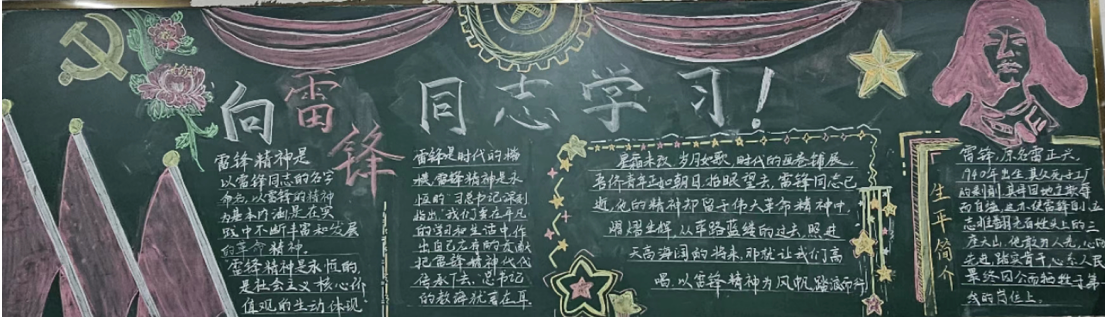 向雷锋同志学习!
雷锋精神是
以雷锋同志的名字
命名,以雷锋的精神
为基本内涵,是在实
践中不断丰富和发展
的革命精神.
雷锋精神是永恒的,
是社会主义核心价
值观的生动体现.
雷锋是时代的楷
模,雷锋精神是永
恒的.习总书记深刻
指出,"我们要在平凡
的学习和生活中,作
出自己应有的贡献
把雷锋精神代代
传承下去.总书记
的教诲犹言在耳
星霜未改,岁月如歌,时代的画卷铺展.
看价青年正如朝日,抬眼望去,雷锋同志已
逝,他的精神却留于伟大革命精神中.
熠熠生辉,从筚路蓝缕的过去,照进
天高海阔的将来,那就让我们高
喝,以雷锋精神为风帆,踏浪而行!
生平简介
雷锋,原名雷正兴,
1940年出生,其父死于工厂
的剥削,其母因地主欺辱
最终因公而牺牲于第
线的岗位上.